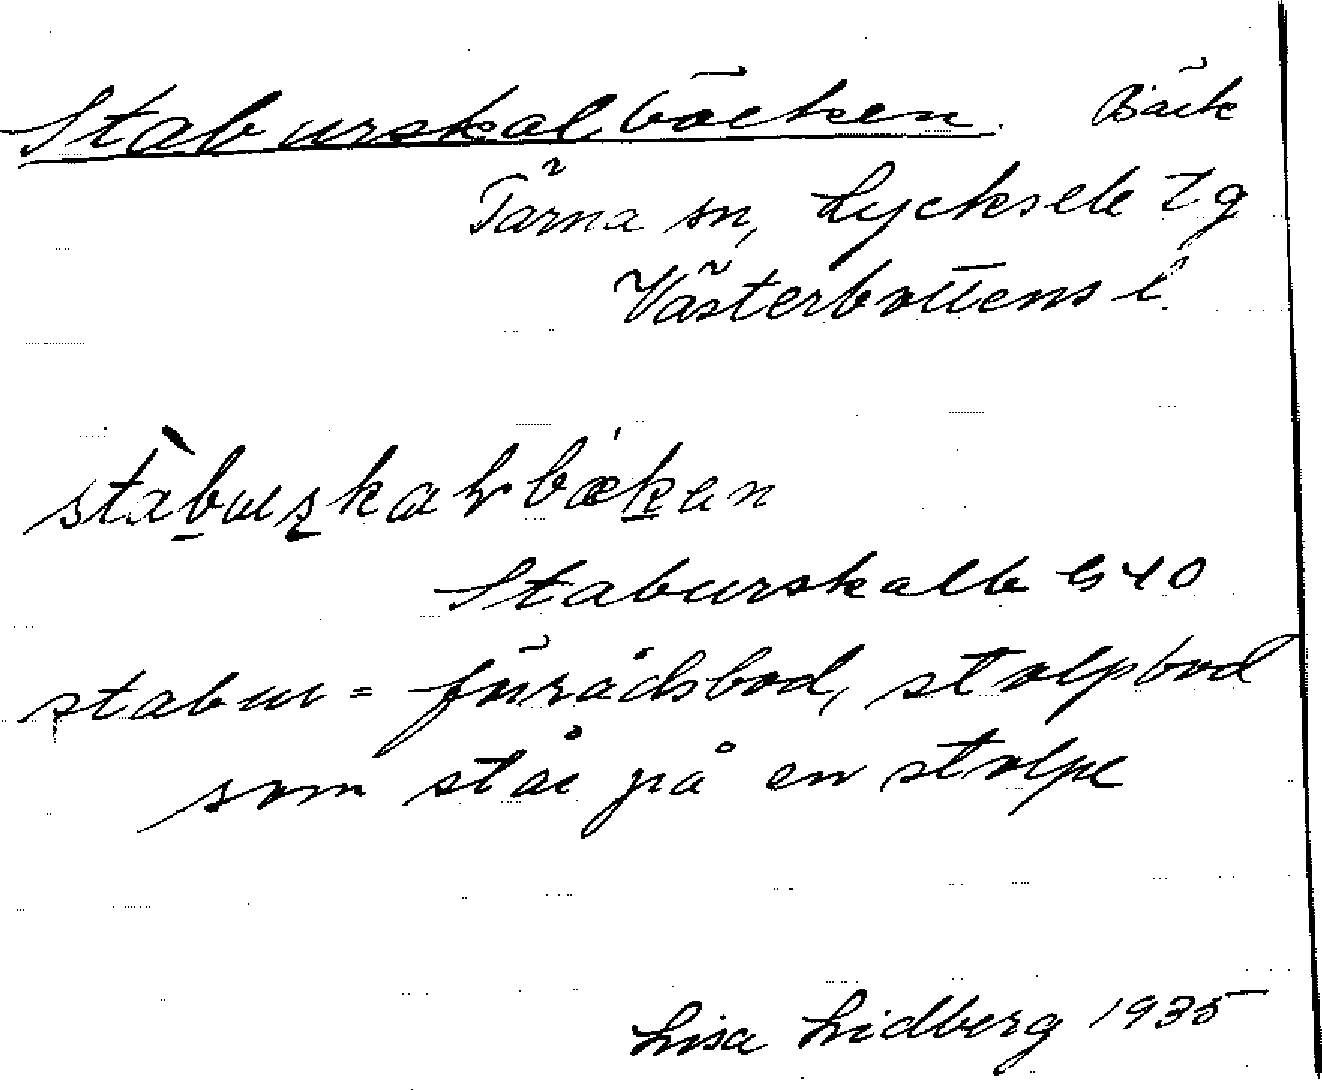 Staburskalbäcken. Bäck
Tärna sn, Lycksele lg
Västerbottens l.
stabuʂkalbækan
Staburskalle G40
stabur = förrådsbod, stolpbod
som står på en stolpe
Lisa Lidberg 1935